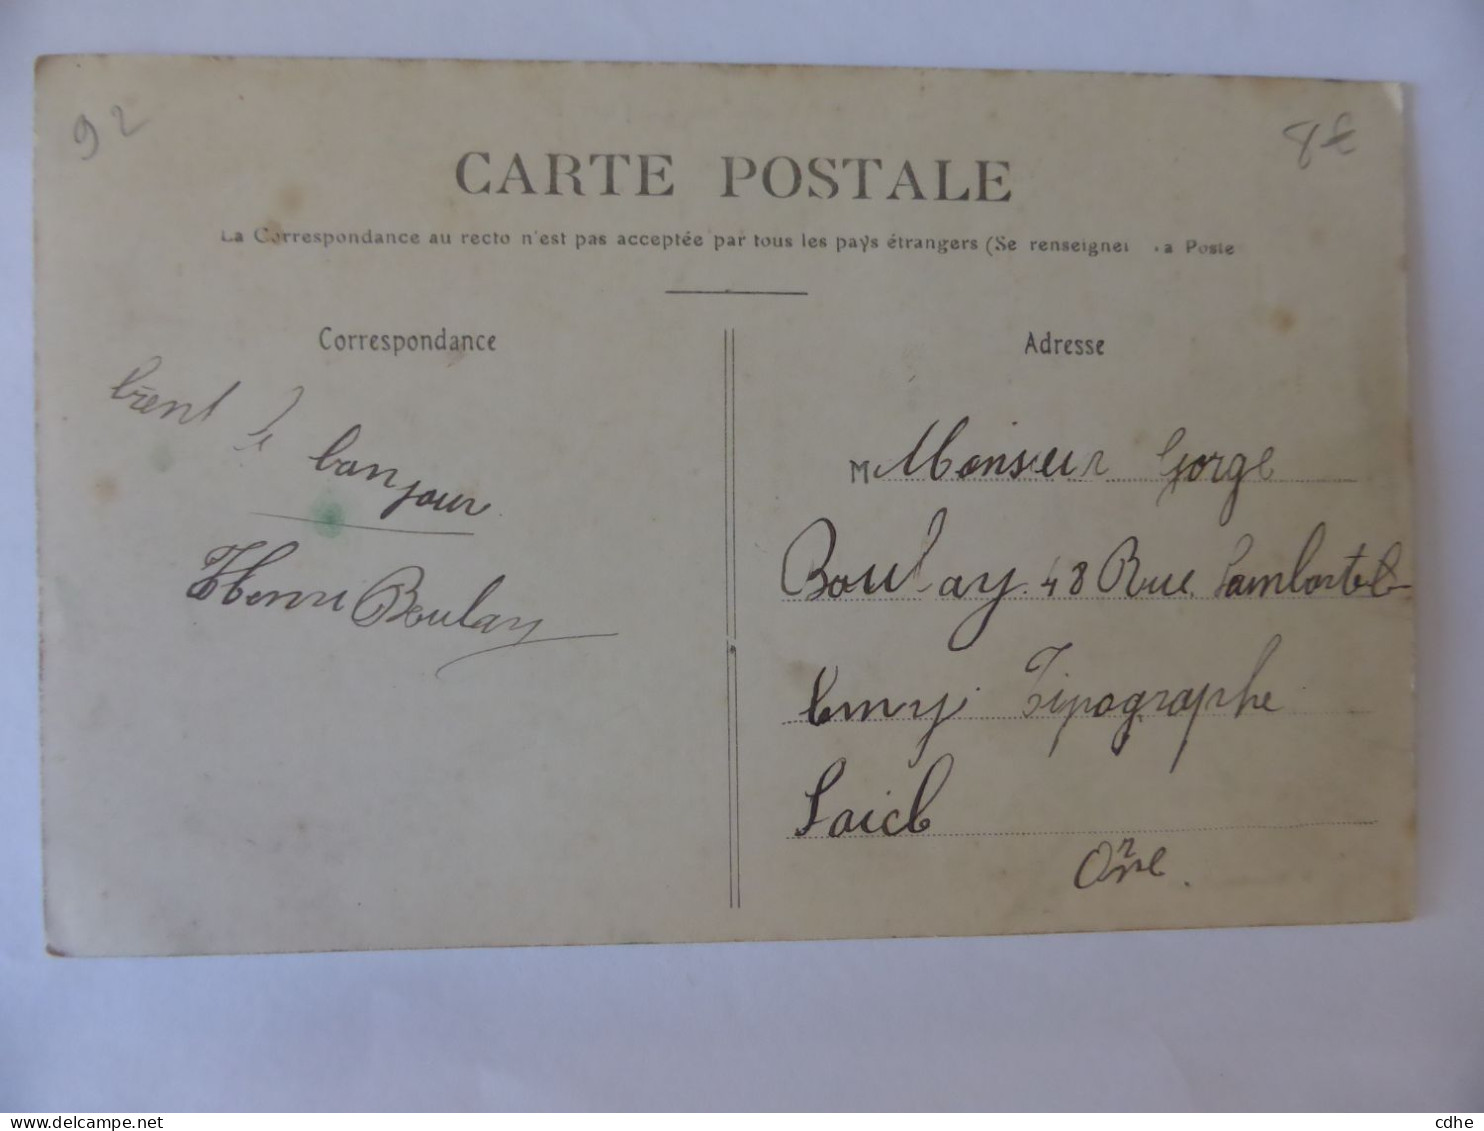 92
8€
CARTE POSTALE
La Correspondance au recto n'est pas acceptée par tous les pays étrangers (Se renseigner a Poste
Correspondance
Adresse
bient le
bonjour
Henri Boulay
M Monsieur Gorge
Boulay 48 Rue
Tipographe
Orne
delcampe.net
cdhe